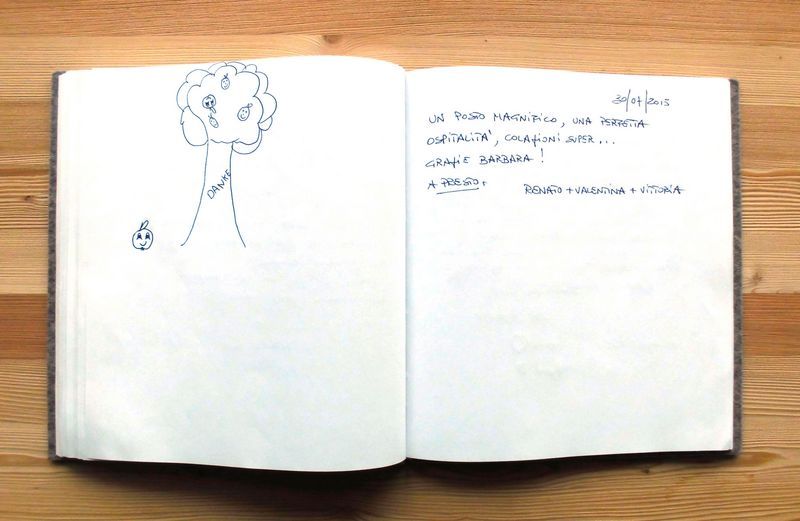 DANKE
30/07/2015
UN POSTO MAGNIFICO, UNA PERFETTA
OSPITALITA', COLAZIONI SUPER...
GRAZIE BARBARA!
A PRESTO.
RENATO + VALENTINA + VITTORIA